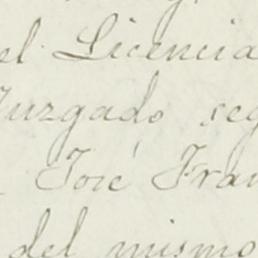 el Licencia
Juzgado, seg
José Fran
del mismo